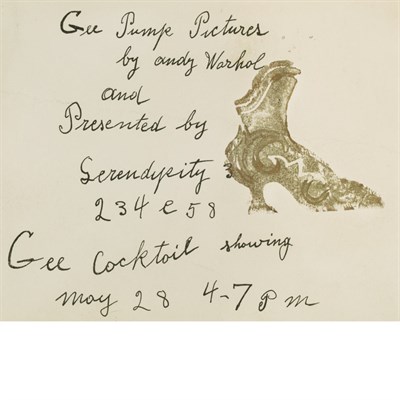 Gee Pump Pictures
by andy Warhol
and
Presented by
Serendypity 3
234 e 58
Gee Cocktail showing
may 28 4-7 pm